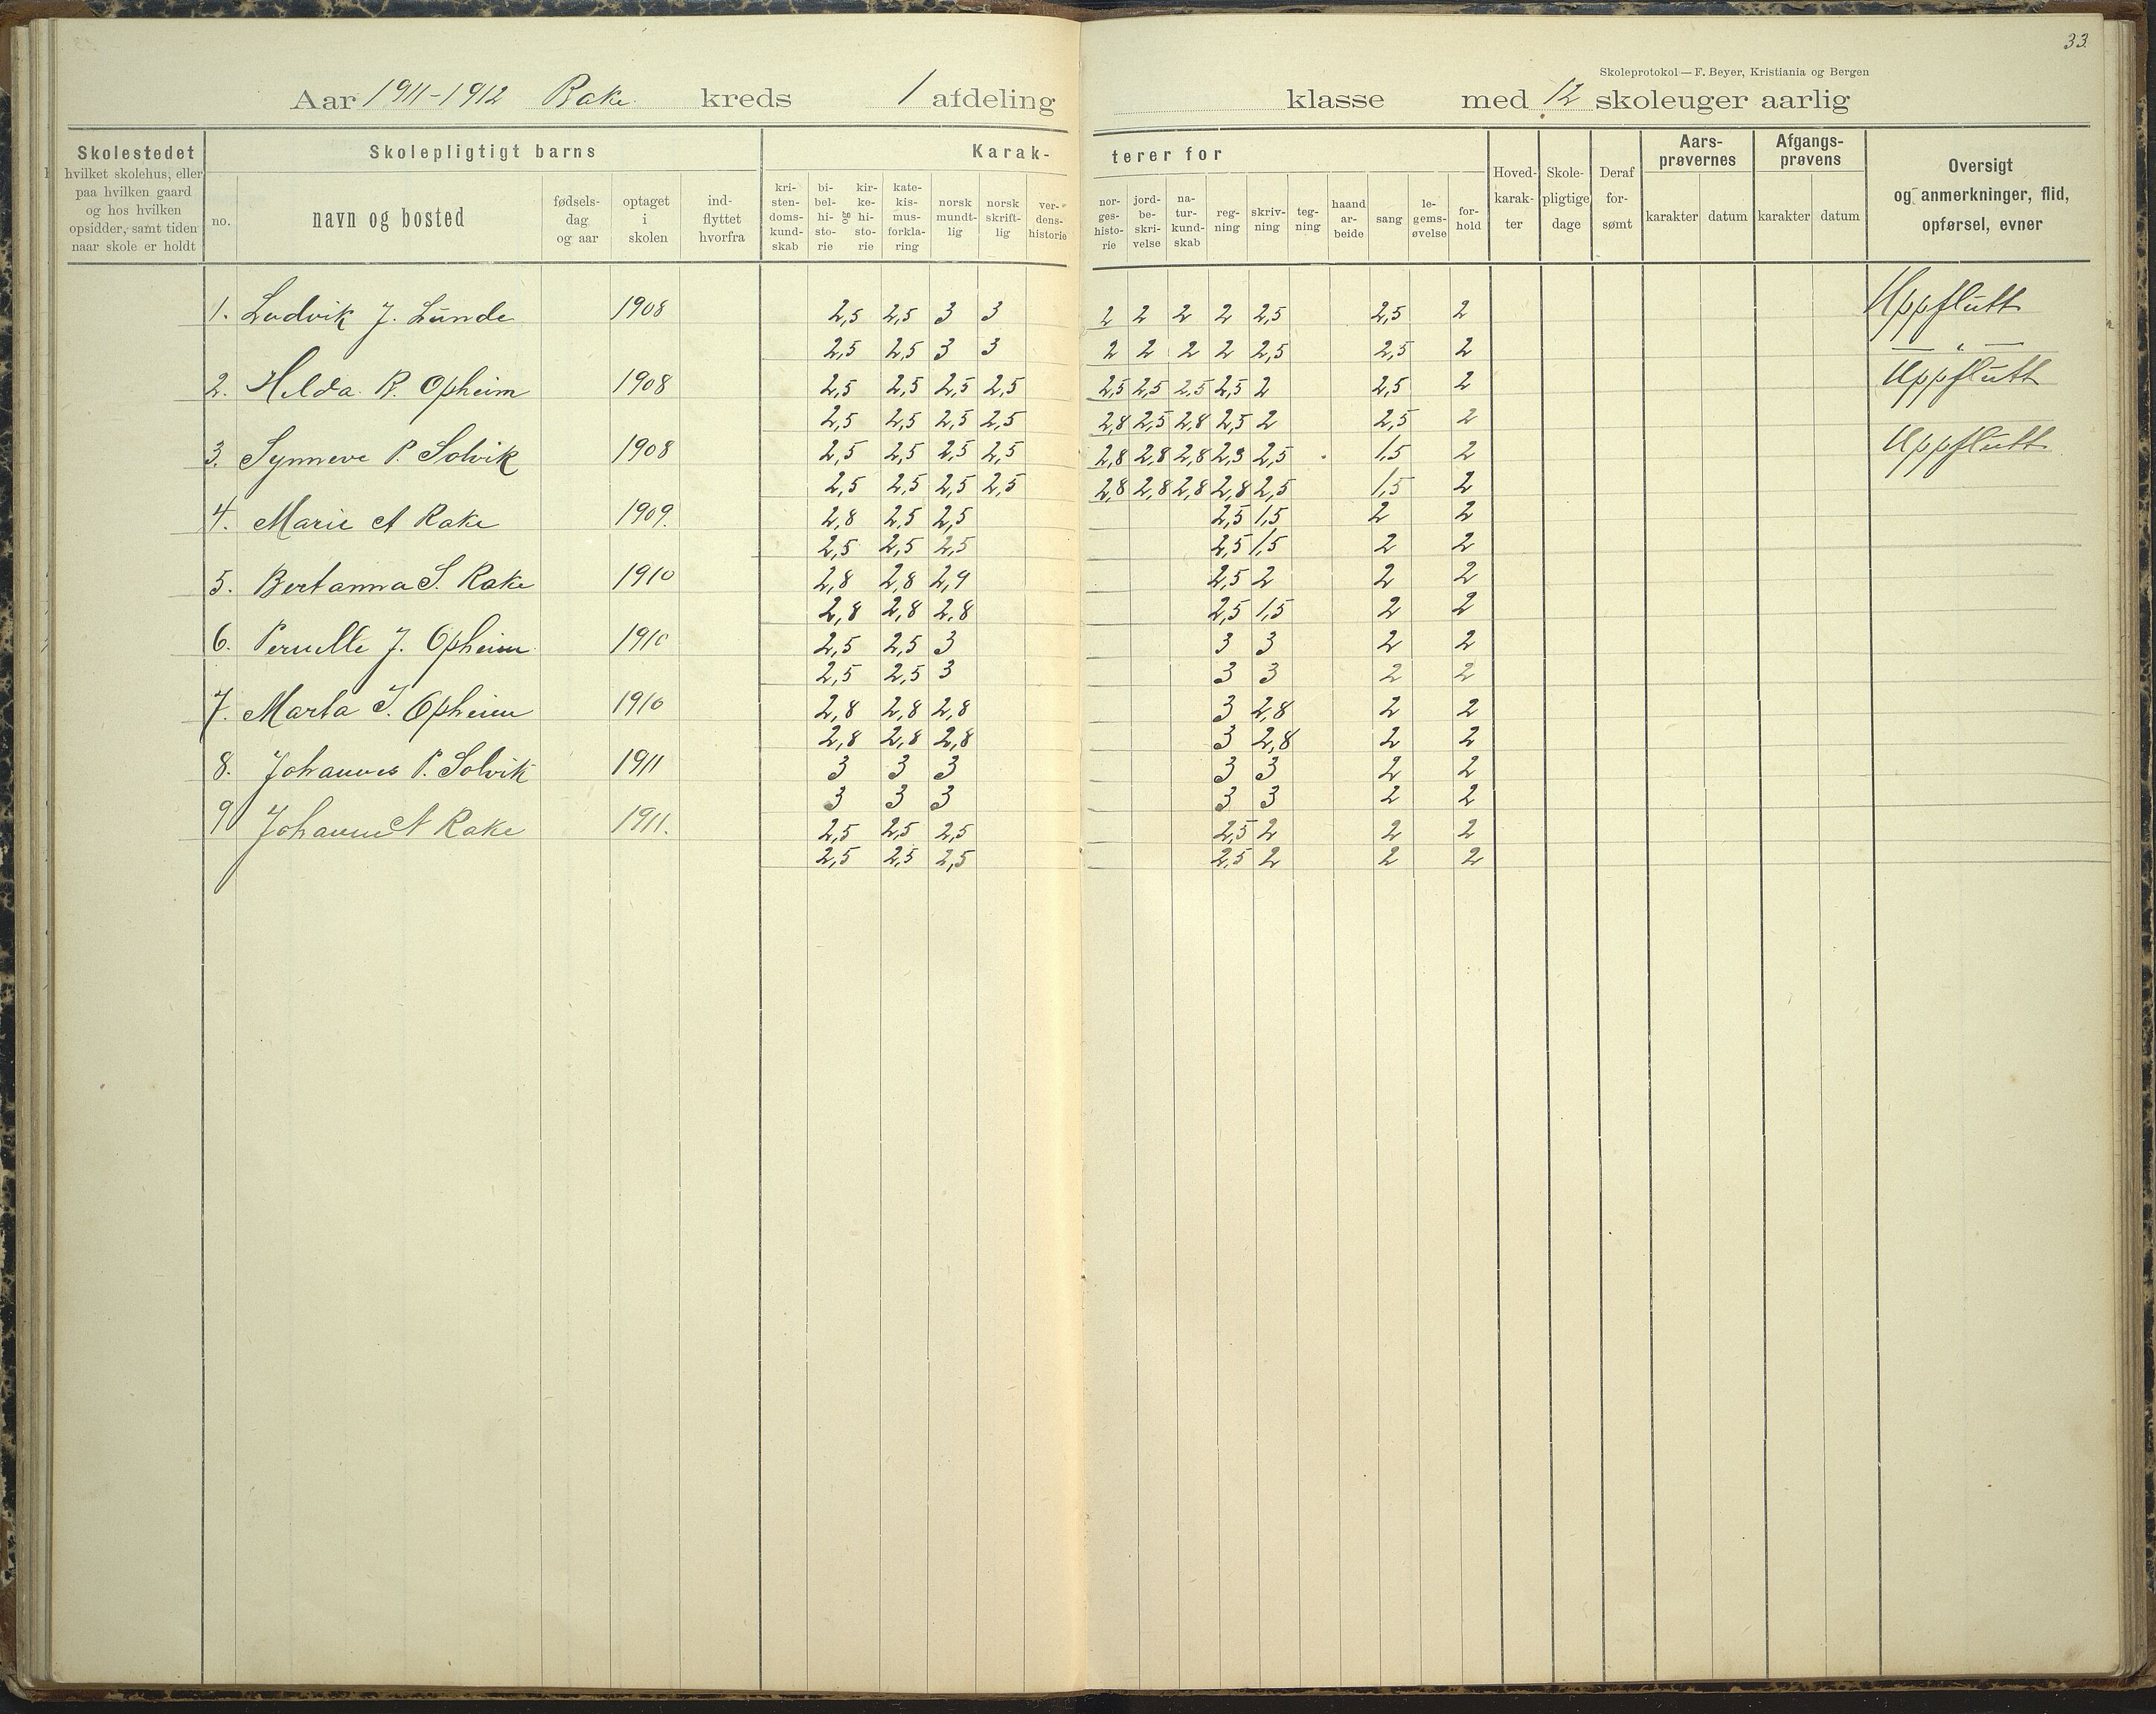 33.
Skoleprotokol — F. Beyer, Kristiania og Bergen
Aar 1911-1912 Rake kreds 1 afdeling klasse med 12 skoleuger aarlig
Skolestedet hvilket skolehus, eller paa hvilken gaard og hos hvilken opsidder, samt tiden naar skole er holdt
Skolepligtigt barns
no. navn og bosted fødselsdag og aar optaget i skolen indflyttet hvorfra
Karakterer for
kristendomskundskab bibelhistorie og kirkehistorie katekismusforklaring norsk mundtlig norsk skriftlig verdenshistorie norgeshistorie jordbeskrivelse naturkundskab regning skrivning tegning haandarbeide sang legemsøvelse forhold
Hovedkarakter Skolepligtige dage Deraf forsømt
Aarsprøvernes karakter datum
Afgangsprøvens karakter datum
Oversigt og anmerkninger, flid, opførsel, evner
1. Ludvik J. Lunde 1908 2,5 2,5 3 3 2 2 2 2 2,5 2,5 2 Uppflutt
2,5 2,5 3 3 2 2 2 2 2,5 2,5 2 — „ —
2. Hilda R. Opheim 1908 2,5 2,5 2,5 2,5 2,5 2,5 2,5 2,5 2 2,5 2 Uppflutt
2,5 2,5 2,5 2,5 2,8 2,5 2,8 2,5 2 2,5 2
3. Synneve P. Solvik 1908 2,5 2,5 2,5 2,5 2,8 2,8 2,8 2,3 2,5 1,5 2 Uppflutt
2,5 2,5 2,5 2,5 2,8 2,8 2,8 2,8 2,5 1,5 2
4. Marie A Rake 1909. 2,8 2,5 2,5 2,5 1,5 2 2
2,5 2,5 2,5 2,5 1,5 2 2
5. Bertanna S. Rake 1910 2,8 2,8 2,9 2,5 2 2 2
2,8 2,8 2,8 2,5 1,5 2 2
6. Pernille J. Opheim 1910 2,5 2,5 3 3 3 2 2
2,5 2,5 3 3 3 2 2
7. Marta I. Opheim 1910 2,8 2,8 2,8 3 2,8 2 2
2,8 2,8 2,8 3 2,8 2 2
8. Johannes P. Solvik 1911 3 3 3 3 3 2 2
3 3 3 3 3 2 2
9 Johanne A Rake 1911. 2,5 2,5 2,5 2,5 2 2 2
2,5 2,5 2,5 2,5 2 2 2